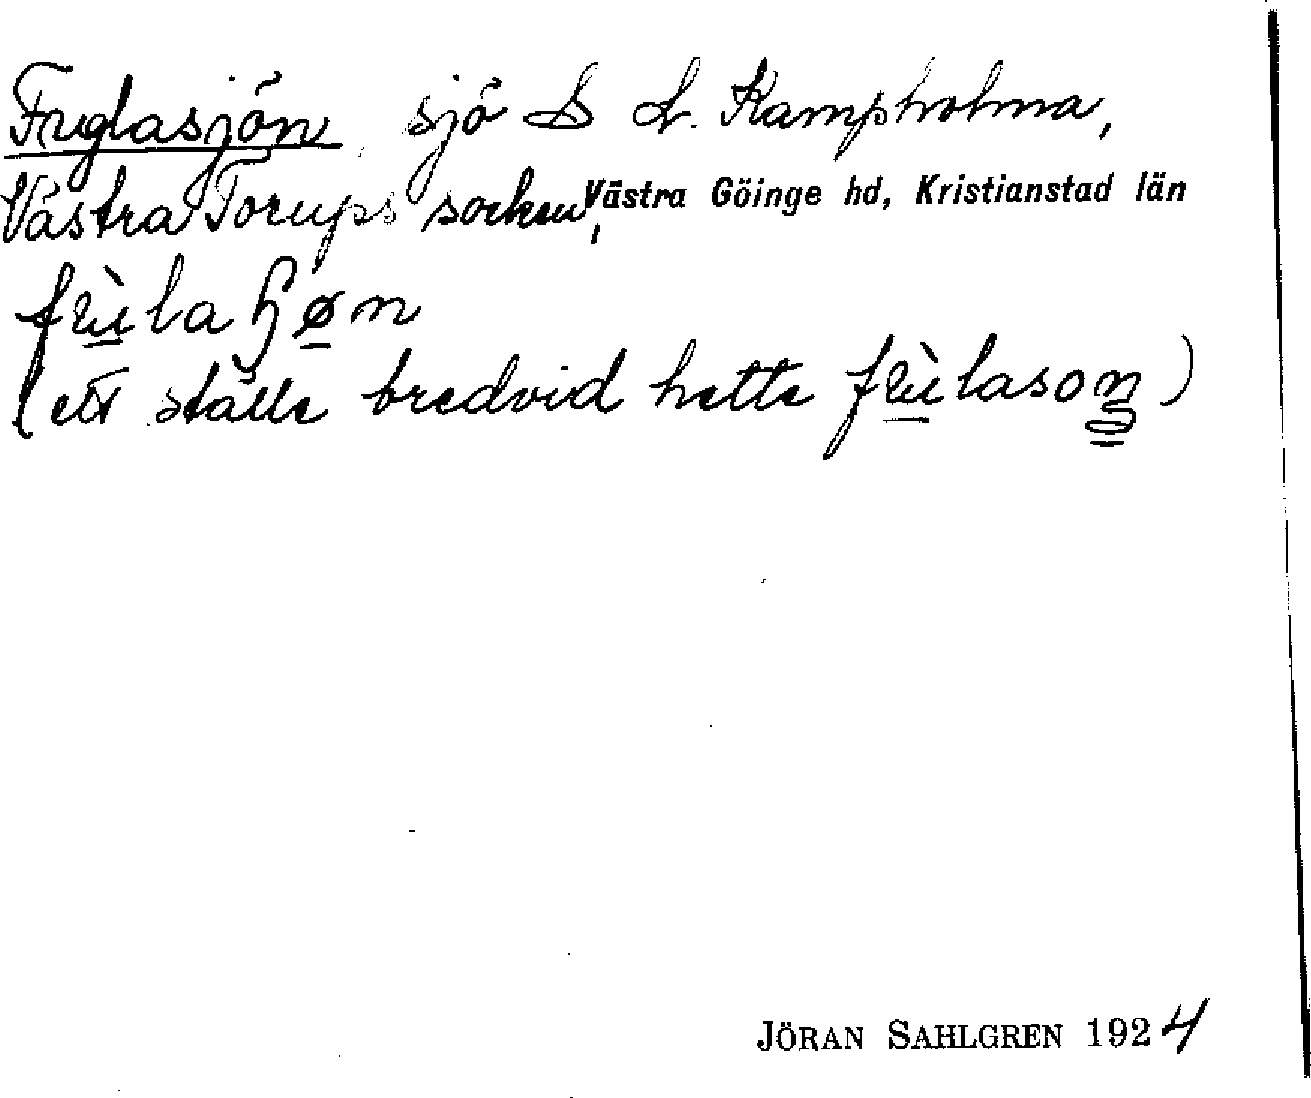 Fuglasjön, sjö S L. Kampholma,
Västra Torups socken, Västra Göinge hd, Kristianstad län
(ett ställe bredvid hette
JÖRAN SAHLGREN 1924